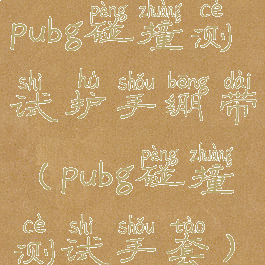 pèng zhuàng cè
pubg碰撞测
shì hù shǒu bēng dài
试护手绷带
pèng zhuàng
（pubg碰撞
cè shì shǒu tào
测试手套）